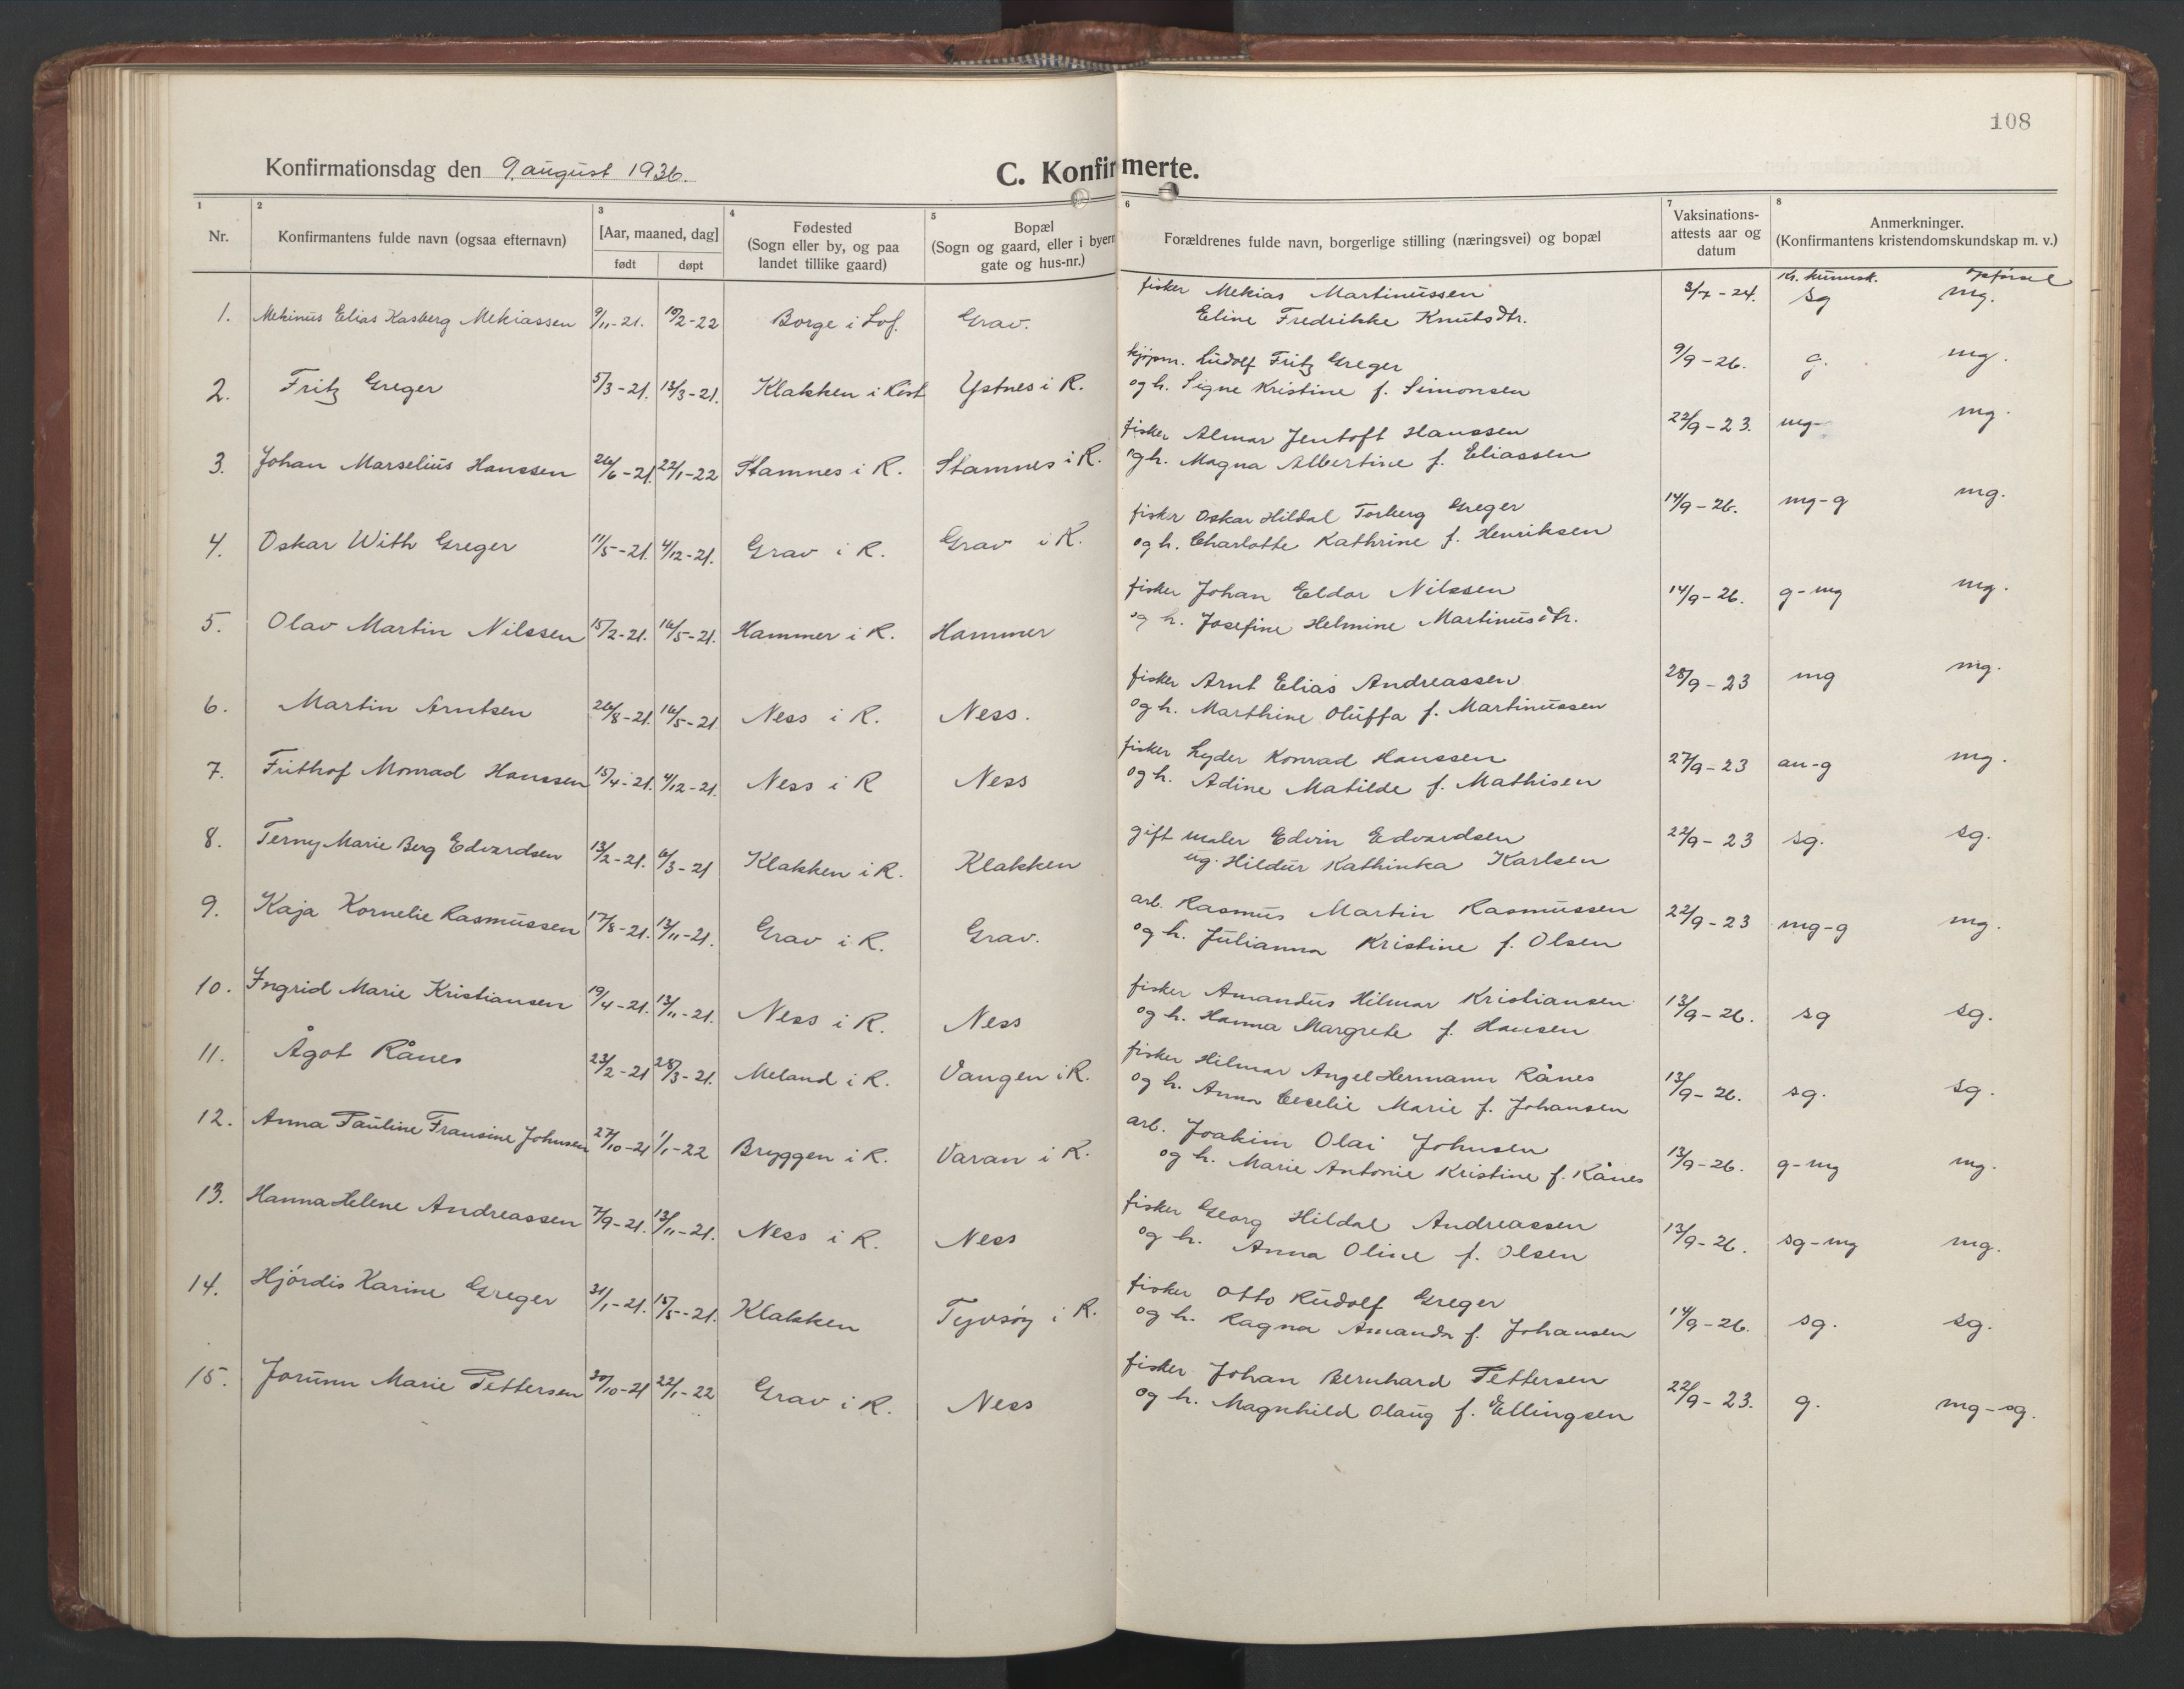 108
Konfirmationsdag den 9. august 1936.
C. Konfirmerte.
1 2 3 4 5 6 7 8
Nr. Konfirmantens fulde navn (ogsaa efternavn) [Aar, maaned, dag] født døpt Fødested (Sogn eller by, og paa landet tillike gaard) Bopæl (Sogn og gaard, eller i byern gate og hus-nr.) Forældrenes fulde navn, borgerlige stilling (næringsvei) og bopæl Vaksinations-attests aar og datum Anmerkninger. (Konfirmantens kristendomskundskap m. v.)
Kr. kunnsk. Opførsel
1. Mekinus Elias Kasberg Mekiassen 9/11-21. 19/2-22 Borge i Lof. Grav. fisker Mekias Martinussen 3/7-24. sg mg.
Eline Fredrikke Knutsdtr.
2. Fritz Greger 5/3-21. 13/3-21. Klakken i Røst Ystnes i R. kjøpm. Ludolf Fritz Greger 9/9-26. g. mg.
og h. Signe Kristine f. Simonsen
3. Johan Marselius Hanssen 26/6-21. 22/1-22 Stamnes i R. Stamnes i R. fisker Almar Jentoft Hanssen 22/9-23. mg- mg.
og h. Magna Albertine f. Eliassen
4. Oskar With Greger 11/5-21. 4/12-21. Grav i R. Grav i R. fisker Oskar Hildal Torberg Greger 14/9-26. mg-g mg.
og h. Charlotte Kathrine f. Henriksen
5. Olav Martin Nilssen 15/2-21. 16/5-21. Hammer i R. Hammer fisker Johan Eldor Nilssen 14/9-26. g-mg mg.
og h. Josefine Helmine Martinusdtr.
6. Martin Arntsen 26/8-21. 16/5-21 Ness i R. Ness. fisker Arnt Elias Andreassen 28/9-23 mg mg.
og h. Marthine Oluffa f. Martinussen
7. Frithof Monrad Hanssen 15/4-21. 4/12-21. Ness i R Ness fisker Lyder Konrad Hanssen 27/9-23 au-g mg.
og h. Adine Matilde f. Mathisen
8. Terny Marie Berg Edvardsen 13/2-21. 6/3-21 Klakken i R. Klakken gift maler Edvin Edvardsen 22/9-23 sg. sg.
ug. Hildur Kathinka Karlsen
9. Kaja Kornelie Rasmussen 17/8-21. 13/11-21. Grav i R. Grav. arb. Rasmus Martin Rasmussen 22/9-23 mg-g mg.
og h. Julianna Kristine f. Olsen
10. Ingrid Marie Kristiansen 19/4-21. 13/11-21. Ness i R. Ness fisker Amandus Hilmar Kristiansen 13/9-26. sg sg.
og h. Hanna Margrete f. Hansen
11. Ågot Rånes 23/2-21 28/3-21. Meland i R. Vangen i R. fisker Hilmar Angel Hermann Rånes 13/9-26. sg. sg.
og h. Anna Cecelie Marie f. Johansen
12. Anna Pauline Fransine Johnsen 27/10-21 1/1-22 Bryggen i R. Varan i R. arb. Joakim Olai Johnsen 13/9-26. g-mg mg.
og h. Marie Antonie Kristine f. Rånes
13. Hanna Helene Andreassen 7/9-21. 13/11-21. Ness i R. Ness fisker Georg Hildal Andreassen 13/9-26. sg-mg mg.
og h. Anna Oline f. Olsen
14. Hjórdis Karine Greger 31/1-21. 15/5-21. Klakken Tyvsøy i R. fisker Otto Rudolf Greger 14/9-26. sg. sg.
og h. Ragna Amanda f. Johansen
15. Jorunn Marie Pettersen 30/10-21 22/1-22 Grav i R. Ness fisker Johan Bernhard Pettersen 22/9-23. g. mg-sg.
og h. Magnhild Olaug f. Ellingsen